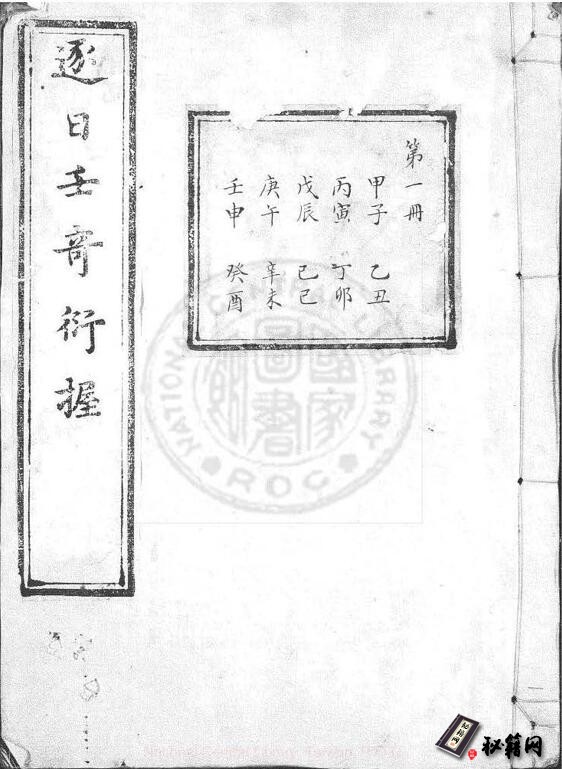 逐日壬奇衍握
第一冊
甲子 乙丑
丙寅 丁卯
戊辰 己巳
庚午 辛未
壬申 癸酉
NATIONAL CENTRAL LIBRARY
R O C
國家圖書館
秘籍网